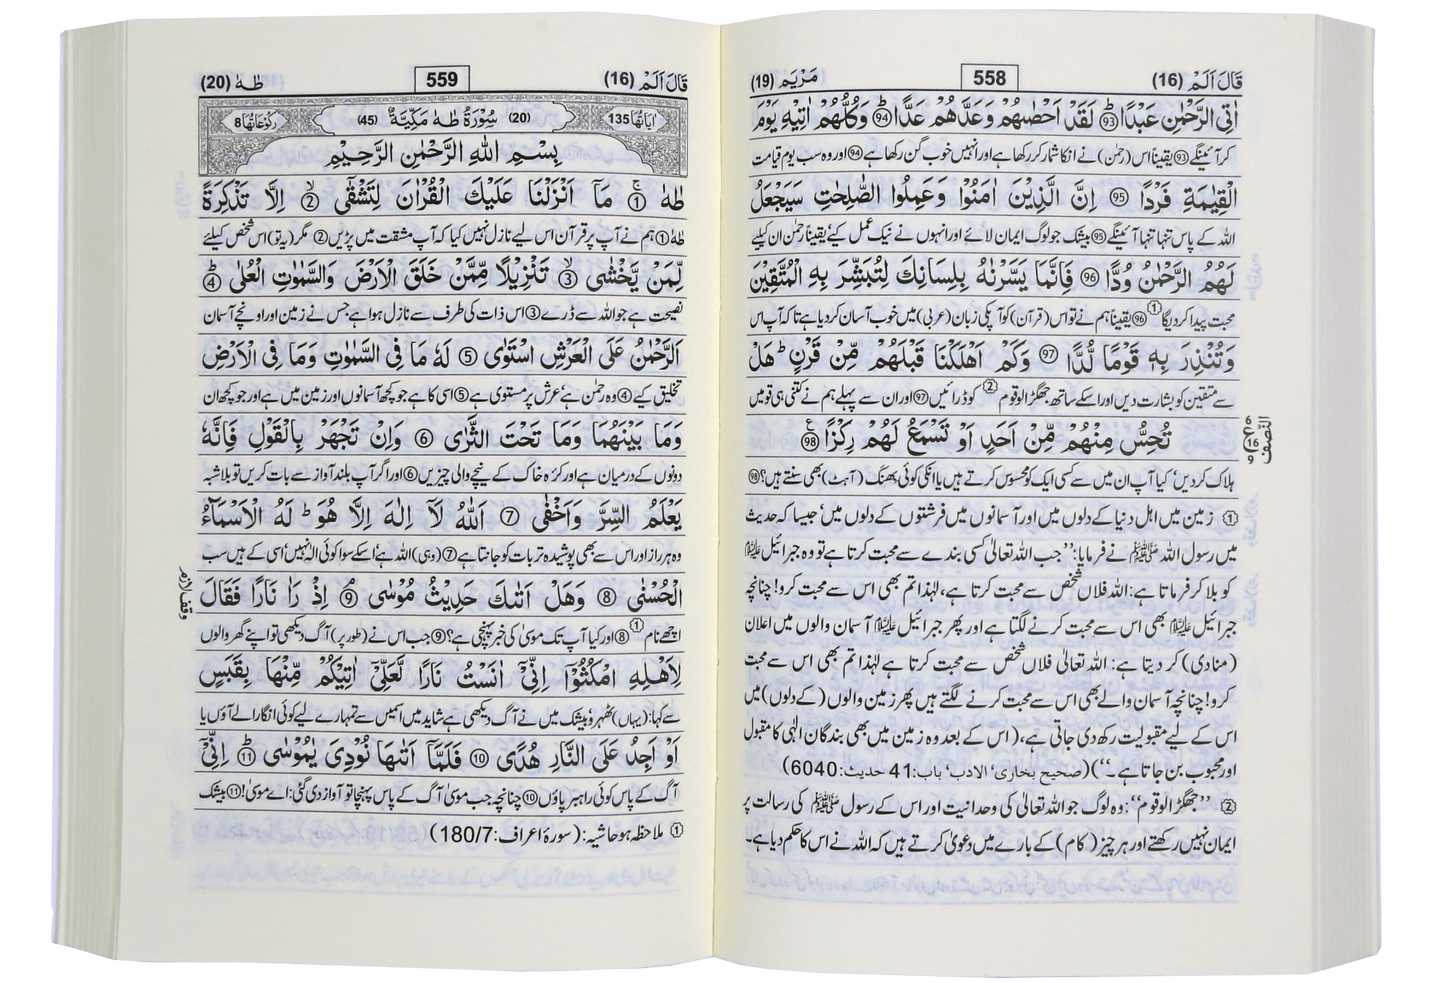 قَالَ اَلَمْ (16)
558
مَرْيَم (19)
اٰتِى الرَّحْمٰنِ عَبْدًا ۝93 لَقَدْ اَحْصٰىهُمْ وَعَدَّهُمْ عَدًّا ۝94 وَكُلُّهُمْ اٰتِيْهِ يَوْمَ
کر آئینگے 93 یقیناً اس (رحمٰن) نے انکا شمار کر رکھا ہے اور انہیں خوب گن رکھا ہے 94 اور وہ سب یوم قیامت
الْقِيٰمَةِ فَرْدًا ۝95 اِنَّ الَّذِيْنَ اٰمَنُوْا وَعَمِلُوا الصّٰلِحٰتِ سَيَجْعَلُ
اللہ کے پاس تنہا تنہا آئینگے 95 بیشک جو لوگ ایمان لائے اور انہوں نے نیک عمل کیے یقیناً رحمٰن ان کیلیے
لَهُمُ الرَّحْمٰنُ وُدًّا ۝96 فَاِنَّمَا يَسَّرْنٰهُ بِلِسَانِكَ لِتُبَشِّرَ بِهِ الْمُتَّقِيْنَ
محبت پیدا کر دیگا ① 96 یقیناً ہم نے تو اس (قرآن) کو آپکی زبان (عربی) میں خوب آسان کر دیا ہے تا کہ آپ اس
وَتُنْذِرَ بِهٖ قَوْمًا لُّدًّا ۝97 وَكَمْ اَهْلَكْنَا قَبْلَهُمْ مِّنْ قَرْنٍ ؕ هَلْ
سے متقین کو بشارت دیں اور اسکے ساتھ جھگڑالو قوم ② کو ڈرائیں 97 اور ان سے پہلے ہم نے کتنی ہی قومیں
تُحِسُّ مِنْهُمْ مِّنْ اَحَدٍ اَوْ تَسْمَعُ لَهُمْ رِكْزًا ۝98
النصف
ہلاک کر دیں' کیا آپ ان میں سے کسی ایک کو محسوس کرتے ہیں یا انکی کوئی بھنک (آہٹ) بھی سنتے ہیں؟ 98
① زمین میں اہل دنیا کے دلوں میں اور آسمانوں میں فرشتوں کے دلوں میں' جیسا کہ حدیث
میں رسول اللہ ﷺ نے فرمایا: ''جب اللہ تعالیٰ کسی بندے سے محبت کرتا ہے تو وہ جبرائیل علیہ السلام
کو بلا کر فرماتا ہے: اللہ فلاں شخص سے محبت کرتا ہے، لہٰذا تم بھی اس سے محبت کرو! چنانچہ
جبرائیل علیہ السلام بھی اس سے محبت کرنے لگتا ہے اور پھر جبرائیل علیہ السلام آسمان والوں میں اعلان
(منادی) کر دیتا ہے: اللہ تعالیٰ فلاں شخص سے محبت کرتا ہے لہٰذا تم بھی اس سے محبت
کرو! چنانچہ آسمان والے بھی اس سے محبت کرنے لگتے ہیں پھر زمین والوں (کے دلوں) میں
اس کے لیے مقبولیت رکھ دی جاتی ہے، (اس کے بعد وہ زمین میں بھی بندگان الٰہی کا مقبول
اور محبوب بن جاتا ہے۔'') (صحیح بخاری' الادب' باب: 41 حدیث: 6040)
② ''جھگڑالو قوم'': وہ لوگ جو اللہ تعالیٰ کی وحدانیت اور اس کے رسول ﷺ کی رسالت پر
ایمان نہیں رکھتے اور ہر چیز (کام) کے بارے میں دعویٰ کرتے ہیں کہ اللہ نے اس کا حکم دیا ہے۔
قَالَ اَلَمْ (16)
559
طٰهٰ (20)
اٰيَاتُهَا 135
(20) سُوْرَةُ طٰهٰ مَكِّيَّةٌ (45)
رُكُوْعَاتُهَا 8
بِسْمِ اللّٰهِ الرَّحْمٰنِ الرَّحِيْمِ
طٰهٰ ۝1 مَآ اَنْزَلْنَا عَلَيْكَ الْقُرْاٰنَ لِتَشْقٰٓى ۝2 اِلَّا تَذْكِرَةً
طٰہٰ 1 ہم نے آپ پر قرآن اس لیے نازل نہیں کیا کہ آپ مشقت میں پڑیں 2 مگر (یہ تو) اس شخص کیلئے
لِّمَنْ يَّخْشٰى ۝3 تَنْزِيْلًا مِّمَّنْ خَلَقَ الْاَرْضَ وَالسَّمٰوٰتِ الْعُلٰى ۝4
نصیحت ہے جو اللہ سے ڈرے 3 اس ذات کی طرف سے نازل ہوا ہے جس نے زمین اور اونچے آسمان
اَلرَّحْمٰنُ عَلَى الْعَرْشِ اسْتَوٰى ۝5 لَهٗ مَا فِى السَّمٰوٰتِ وَمَا فِى الْاَرْضِ
تخلیق کیے 4 وہ رحمٰن ہے' عرش پر مستوی ہے 5 اسی کا ہے جو کچھ آسمانوں اور زمین میں ہے اور جو کچھ ان
وَمَا بَيْنَهُمَا وَمَا تَحْتَ الثَّرٰى ۝6 وَاِنْ تَجْهَرْ بِالْقَوْلِ فَاِنَّهٗ
دونوں کے درمیان ہے اور کرۂ خاک کے نیچے والی چیزیں 6 اور اگر آپ بلند آواز سے بات کریں تو بلاشبہ
يَعْلَمُ السِّرَّ وَاَخْفٰى ۝7 اَللّٰهُ لَآ اِلٰهَ اِلَّا هُوَ ؕ لَهُ الْاَسْمَآءُ
وہ ہر راز اور اس سے بھی پوشیدہ تر بات کو جانتا ہے 7 (وہی) اللہ ہے' اسکے سوا کوئی الٰہ نہیں' اسی کے ہیں سب
الْحُسْنٰى ۝8 وَهَلْ اَتٰىكَ حَدِيْثُ مُوْسٰى ۝9 اِذْ رَاٰ نَارًا فَقَالَ
اچھے نام ① 8 اور کیا آپ تک موسیٰ کی خبر پہنچی ہے؟ 9 جب اس نے (طور پر) آگ دیکھی تو اپنے گھر والوں
لِاَهْلِهِ امْكُثُوْٓا اِنِّىْٓ اٰنَسْتُ نَارًا لَّعَلِّىْٓ اٰتِيْكُمْ مِّنْهَا بِقَبَسٍ
سے کہا: (یہاں) ٹھہرو' بیشک میں نے آگ دیکھی ہے شاید میں اسمیں سے تمہارے لیے کوئی انگارا لے آؤں یا
اَوْ اَجِدُ عَلَى النَّارِ هُدًى ۝10 فَلَمَّآ اَتٰىهَا نُوْدِىَ يٰمُوْسٰى ۝11 اِنِّىْٓ
آگ کے پاس کوئی راہبر پاؤں 10 چنانچہ جب موسیٰ آگ کے پاس پہنچا تو آواز دی گئی: اے موسیٰ! 11 بیشک
① ملاحظہ ہو حاشیہ: (سورۂ اعراف: 180/7)